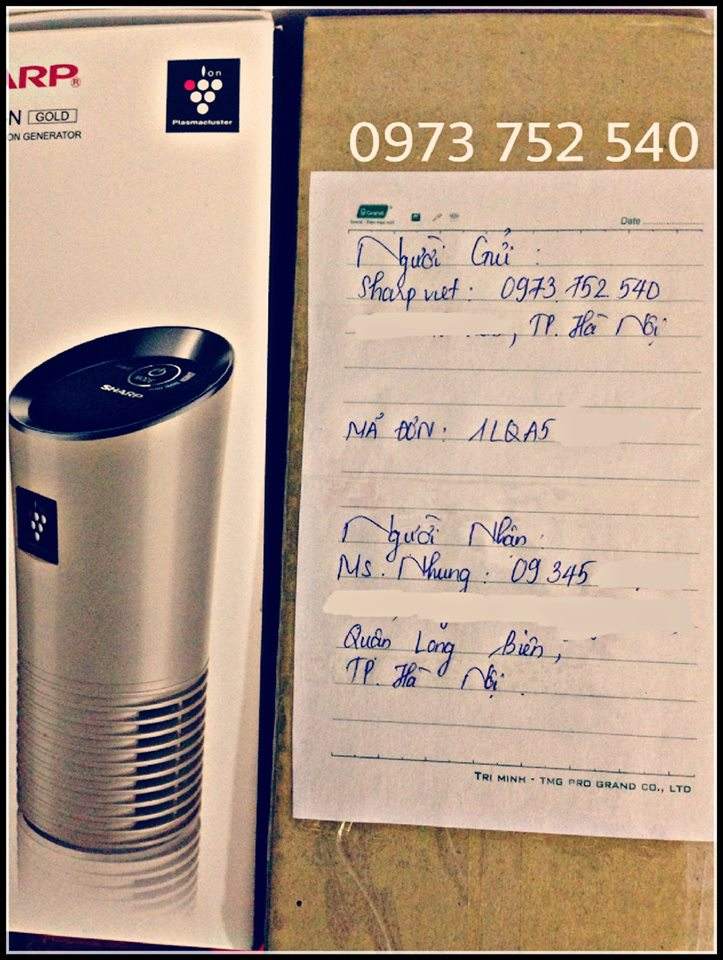 ARP®
N GOLD
ON GENERATOR
Ion
Plasmacluster
MODE
SHARP
0973 752 540
Grand
Date
Người Gửi :
Sharp viet : 0973.752 540
, TP. Hà Nội
MÃ ĐƠN : 1LQA5
Người Nhận :
Ms. Nhung : 09 345
Quận Long Biên,
TP. Hà Nội
TRI MINH - TMG PRO GRAND CO., LTD